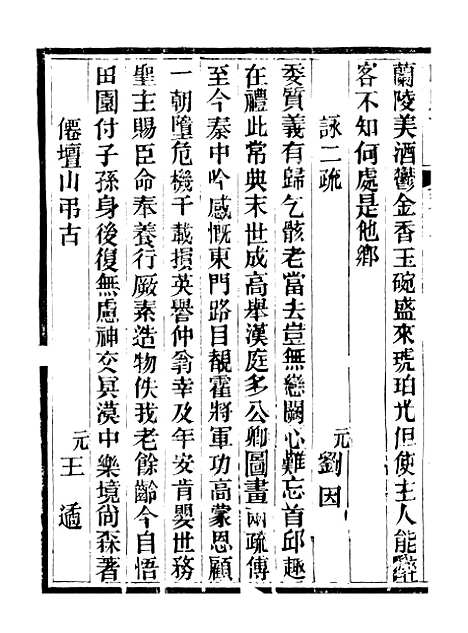 蘭陵美酒鬱金香玉碗盛來琥珀光但使主人能醉
客不知何處是他鄉
詠二疏
元劉因
委質義有歸乞骸老當去豈無戀闕心難忘首邱趣
在禮此常典末世成高舉漢庭多公卿圖畫兩疏傳
至今秦中吟感慨東門路目覩霍將軍功高蒙恩顧
一朝墮危機千載損英譽仲翁幸及年安肯嬰世務
聖主賜臣金奉養行厥素造物佚我老餘齡今自悟
田園付子孫身後復無慮神交冥漠中樂境尚森著
僊壇山弔古
元王遁